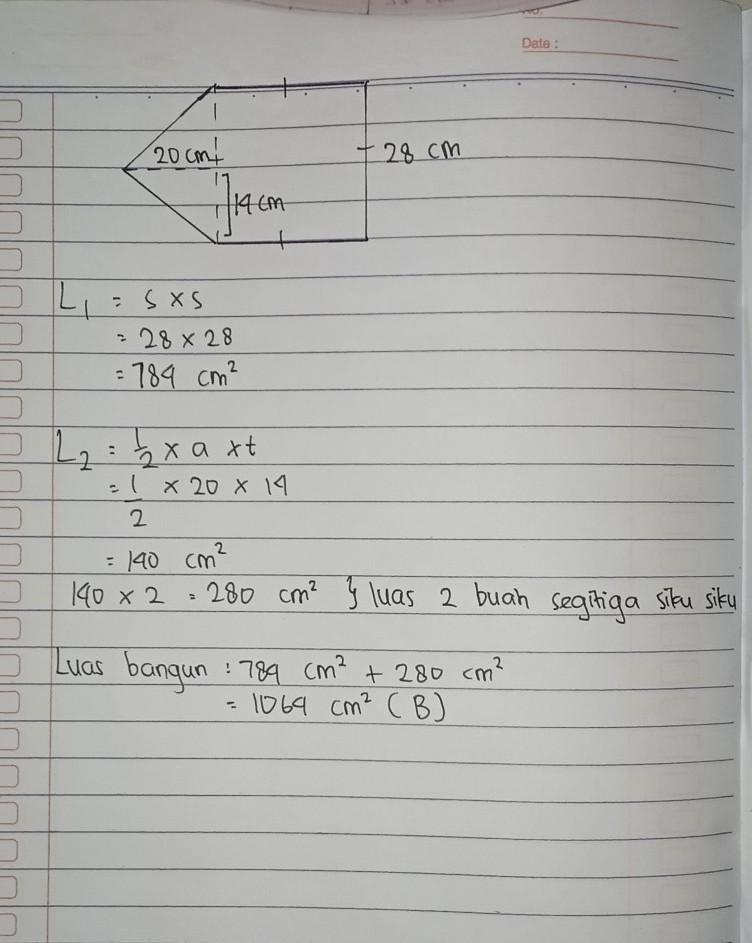 No:
Date :
20 cm
28 cm
14 cm
L₁ = s x s
= 28 x 28
= 784 cm²
L₂ = 1/2 x a x t
= 1/2 x 20 x 14
= 140 cm²
140 x 2 = 280 cm² } luas 2 buah segitiga siku siku
Luas bangun : 784 cm² + 280 cm²
= 1064 cm² (B)